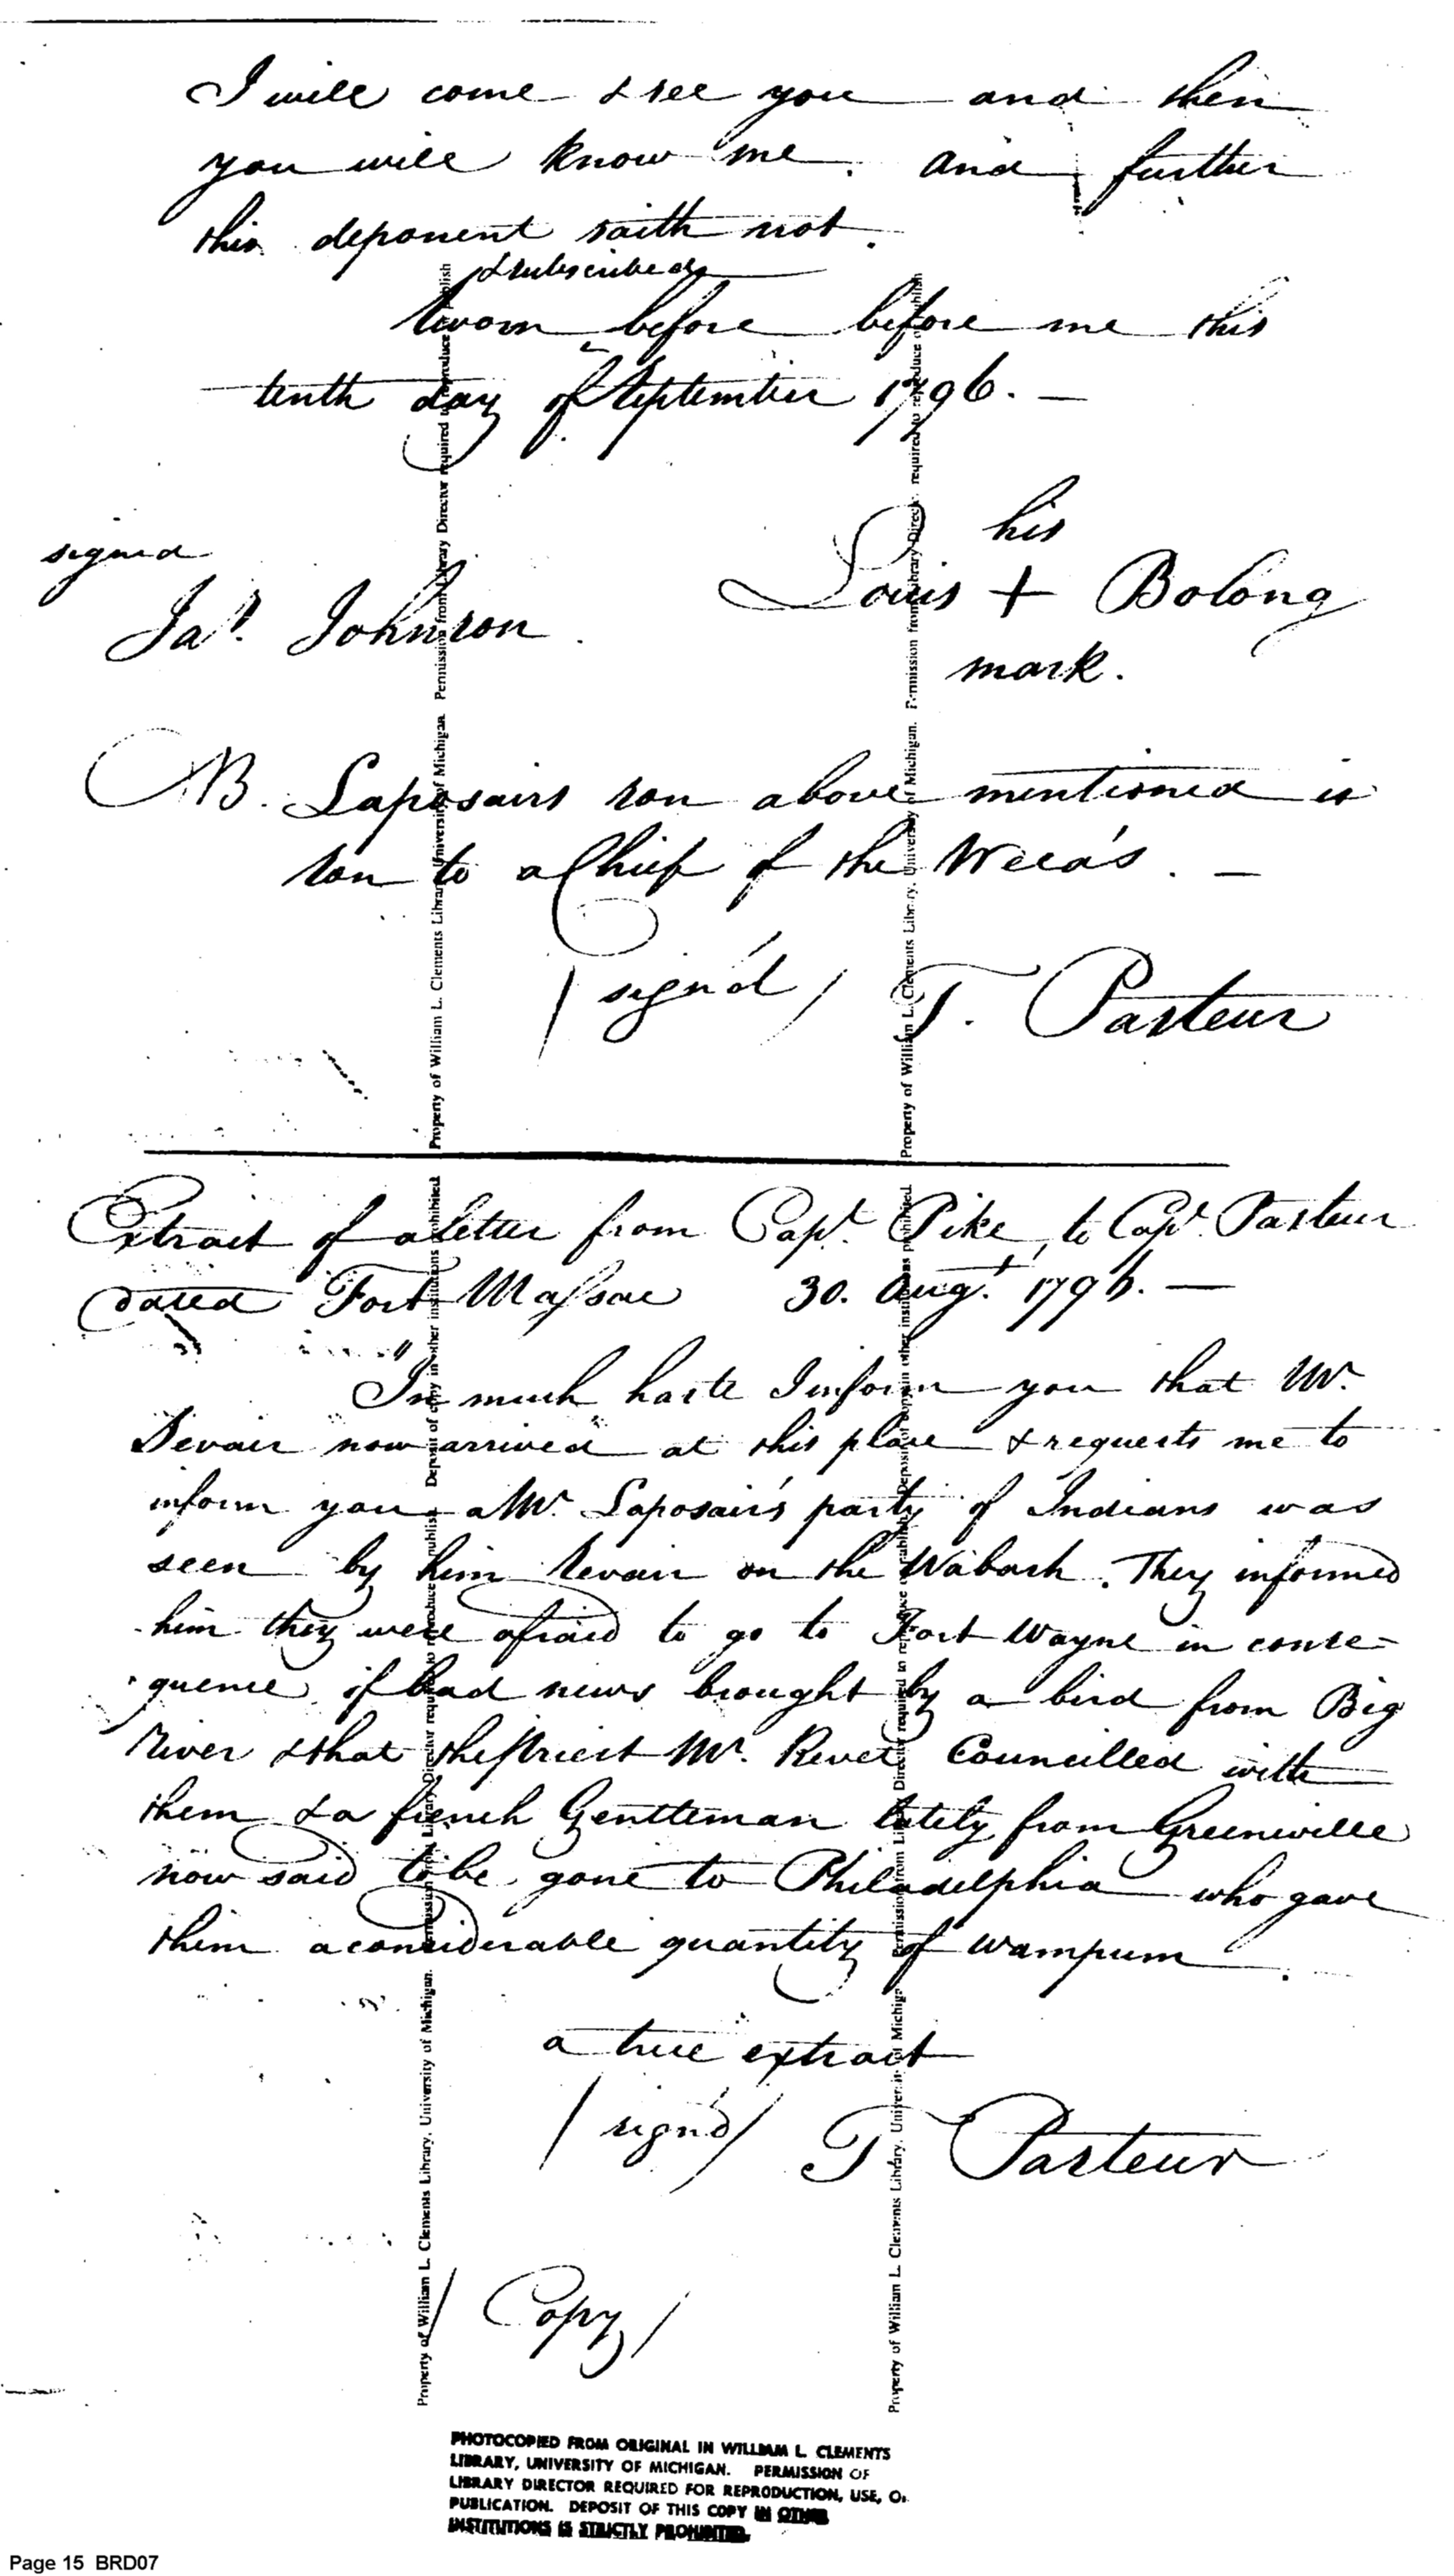 I will come & see you and then
you will know me. and further
this deponent saith not.
& subscribed
Sworn before before me this
tenth day of September 1796. —
signed
Jas. Johnson.
his
Louis + Bolong
mark.
NB. Laposairs son above mentioned is
son to a Chief of the Weea's. —
/ sign'd / T. Pasteur
Extract of a letter from Capt. Pike, to Capt. Pasteur
dated Fort Massac 30. Augt. 1796. —
"In much haste I inform you that Mr.
Sevair now arrived at this place & requests me to
inform you a Mr. Laposair's party of Indians was
seen by him Sevair on the Wabash. They informed
him they were afraid to go to Fort Wayne in conse-
quence of bad news brought by a bird from Big
River & that the Priest Mr. Rivet Councilled with
them & a french Gentleman lately from Greenville
now said to be gone to Philadelphia who gave
them a considerable quantity of wampum.
a true extract
/ sign'd / T Pasteur
/ Copy /
Property of William L. Clements Library, University of Michigan. Permission from Library Director required to reproduce or publish. Deposit of copy in other institutions prohibited.
Property of William L. Clements Library, University of Michigan. Permission from Library Director required to reproduce or publish. Deposit of copy in other institutions prohibited.
PHOTOCOPIED FROM ORIGINAL IN WILLIAM L. CLEMENTS
LIBRARY, UNIVERSITY OF MICHIGAN. PERMISSION OF
LIBRARY DIRECTOR REQUIRED FOR REPRODUCTION, USE, OR
PUBLICATION. DEPOSIT OF THIS COPY IN OTHER
INSTITUTIONS IS STRICTLY PROHIBITED.
Page 15 BRD07